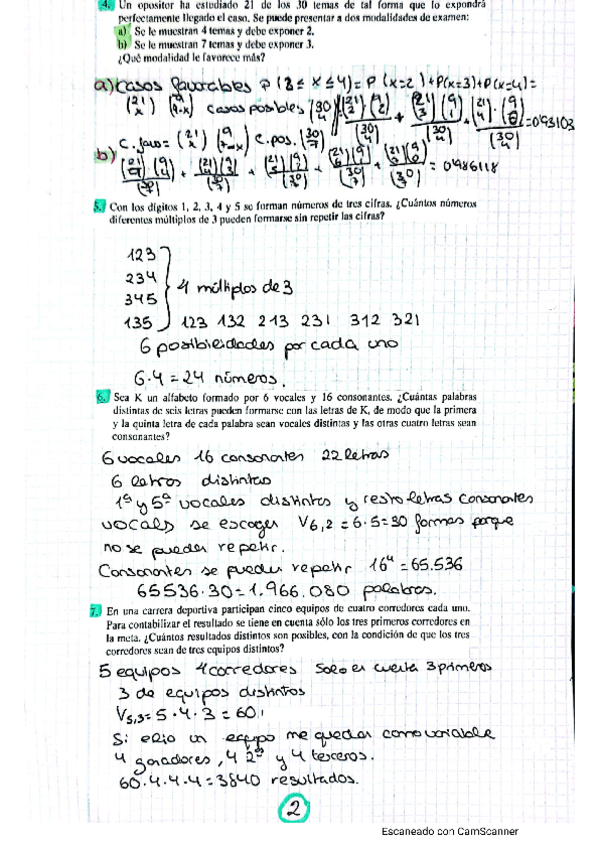 4. Un opositor ha estudiado 21 de los 30 temas de tal forma que lo expondrá
perfectamente llegado el caso. Se puede presentar a dos modalidades de examen:
a) Se le muestran 4 temas y debe exponer 2.
b) Se le muestran 7 temas y debe exponer 3.
¿Qué modalidad le favorece más?
a) Casos favorables P(2≤x≤4) = P(x=2)+P(x=3)+P(x=4)=
(21 x) (9 4-x) casos posibles (30 4) (21 2)(9 2)/(30 4) + (21 3)(9 1)/(30 4) + (21 4)·(9 0)/(30 4) = 0'93103
b) C. favo= (21 x) (9 7-x) C. pos. (30 7)
= 0'986118
5. Con los dígitos 1, 2, 3, 4 y 5 se forman números de tres cifras. ¿Cuántos números
diferentes múltiplos de 3 pueden formarse sin repetir las cifras?
123
234
345
135
4 múltiplos de 3
123 132 213 231 312 321
6 posibilidades por cada uno
6·4 = 24 números.
6. Sea K un alfabeto formado por 6 vocales y 16 consonantes. ¿Cuántas palabras
distintas de seis letras pueden formarse con las letras de K, de modo que la primera
y la quinta letra de cada palabra sean vocales distintas y las otras cuatro letras sean
consonantes?
6 vocales 16 consonantes 22 letras
6 letras distintas
1ª y 5ª vocales distintas y resto letras consonantes
vocales se escogen V6,2 = 6·5=30 formas porque
no se pueden repetir.
Consonantes se pueden repetir 16⁴ = 65.536
65536·30 = 1.966.080 palabras.
7. En una carrera deportiva participan cinco equipos de cuatro corredores cada uno.
Para contabilizar el resultado se tiene en cuenta sólo los tres primeros corredores en
la meta. ¿Cuántos resultados distintos son posibles, con la condición de que los tres
corredores sean de tres equipos distintos?
5 equipos 4 corredores Solo en cuenta 3 primeros
3 de equipos distintos
V5,3 = 5·4·3 = 60
Si elijo un equipo me quedan como variable
4 ganadores, 4 2º y 4 terceros.
60·4·4·4 = 3840 resultados.
2
Escaneado con CamScanner